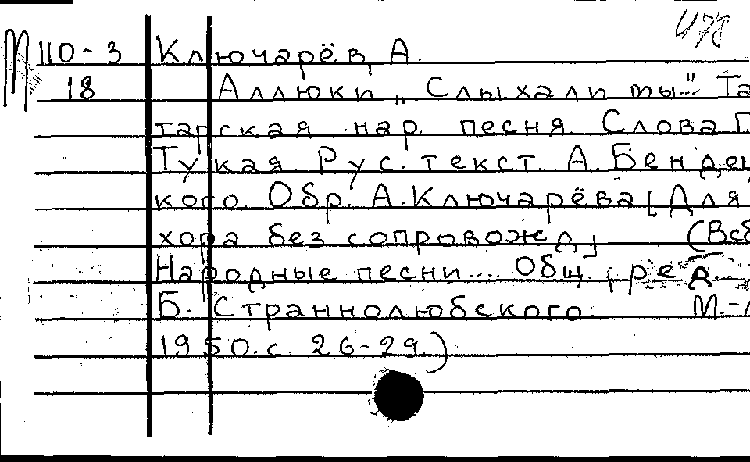 478
М 110-3 Ключарёв, А.
18 Аллюки „Слыхали ты..." Та-
тарская нар. песня. Слова Г.
Тукая. Рус. текст А. Бендец
кого. Обр. А. Ключарёва [Для
хора без сопровожд.] (Всб
Народные песни... Общ. ред.
Б. Страннолюбского. М.-Л
1950. с. 26-29.)